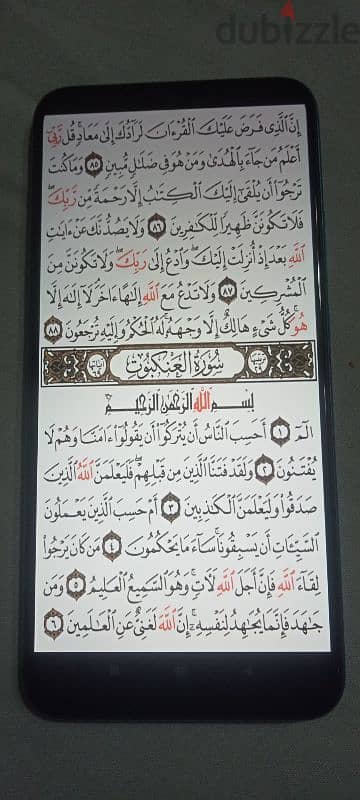 dubizzle
إِنَّ ٱلَّذِى فَرَضَ عَلَيْكَ ٱلْقُرْءَانَ لَرَآدُّكَ إِلَىٰ مَعَادٍ قُل رَّبِّىٓ
أَعْلَمُ مَن جَآءَ بِٱلْهُدَىٰ وَمَنْ هُوَ فِى ضَلَٰلٍ مُّبِينٍ ٨٥ وَمَا كُنتَ
تَرْجُوٓا۟ أَن يُلْقَىٰٓ إِلَيْكَ ٱلْكِتَٰبُ إِلَّا رَحْمَةً مِّن رَّبِّكَ
فَلَا تَكُونَنَّ ظَهِيرًا لِّلْكَٰفِرِينَ ٨٦ وَلَا يَصُدُّنَّكَ عَنْ ءَايَٰتِ
ٱللَّهِ بَعْدَ إِذْ أُنزِلَتْ إِلَيْكَ وَٱدْعُ إِلَىٰ رَبِّكَ وَلَا تَكُونَنَّ مِنَ
ٱلْمُشْرِكِينَ ٨٧ وَلَا تَدْعُ مَعَ ٱللَّهِ إِلَٰهًا ءَاخَرَ لَآ إِلَٰهَ إِلَّا
هُوَ كُلُّ شَىْءٍ هَالِكٌ إِلَّا وَجْهَهُۥ لَهُ ٱلْحُكْمُ وَإِلَيْهِ تُرْجَعُونَ ٨٨
سُورَةُ العَنكَبُوتِ
بِسْمِ ٱللَّهِ ٱلرَّحْمَٰنِ ٱلرَّحِيمِ
الٓمٓ ١ أَحَسِبَ ٱلنَّاسُ أَن يُتْرَكُوٓا۟ أَن يَقُولُوٓا۟ ءَامَنَّا وَهُمْ لَا
يُفْتَنُونَ ٢ وَلَقَدْ فَتَنَّا ٱلَّذِينَ مِن قَبْلِهِمْ فَلَيَعْلَمَنَّ ٱللَّهُ ٱلَّذِينَ
صَدَقُوا۟ وَلَيَعْلَمَنَّ ٱلْكَٰذِبِينَ ٣ أَمْ حَسِبَ ٱلَّذِينَ يَعْمَلُونَ
ٱلسَّيِّـَٔاتِ أَن يَسْبِقُونَا سَآءَ مَا يَحْكُمُونَ ٤ مَن كَانَ يَرْجُوا۟
لِقَآءَ ٱللَّهِ فَإِنَّ أَجَلَ ٱللَّهِ لَـَٔاتٍ وَهُوَ ٱلسَّمِيعُ ٱلْعَلِيمُ ٥ وَمَن
جَٰهَدَ فَإِنَّمَا يُجَٰهِدُ لِنَفْسِهِۦٓ إِنَّ ٱللَّهَ لَغَنِىٌّ عَنِ ٱلْعَٰلَمِينَ ٦